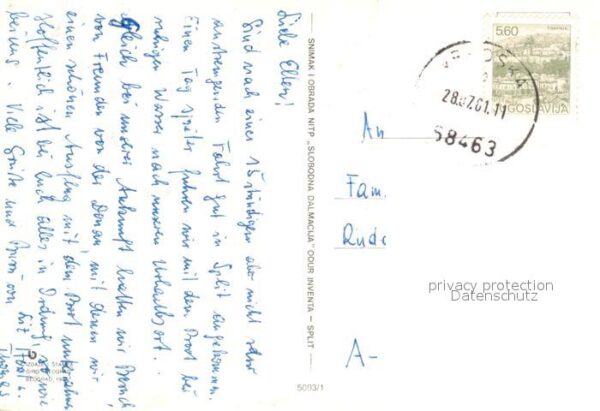 Liebe Eltern!
Sind nach einer 15 stündigen aber nicht sehr
anstrengenden Fahrt gut in Split angekommen.
Einen Tag später fuhren wir mit dem Boot bei
ruhigem Wasser nach unserem Urlaubsort.
Gleich bei unserer Ankunft hatten wir Besuch
von Freunden von der Donau, mit denen wir
einen schönen Ausflug mit dem Boot unternahmen
Hoffentlich ist bei Euch alles in Ordnung, so wie
bei uns. Viele Grüße und Bussi von
Thomas
SNIMAK I OBRADA NITP „SLOBODNA DALMACIJA" ODUR INVENTA – SPLIT
5093/1
BEOGRAD
5.60
JUGOSLAVIJA
28.07.81.11
58463
An
Fam.
Rudo
A-
privacy protection
Datenschutz